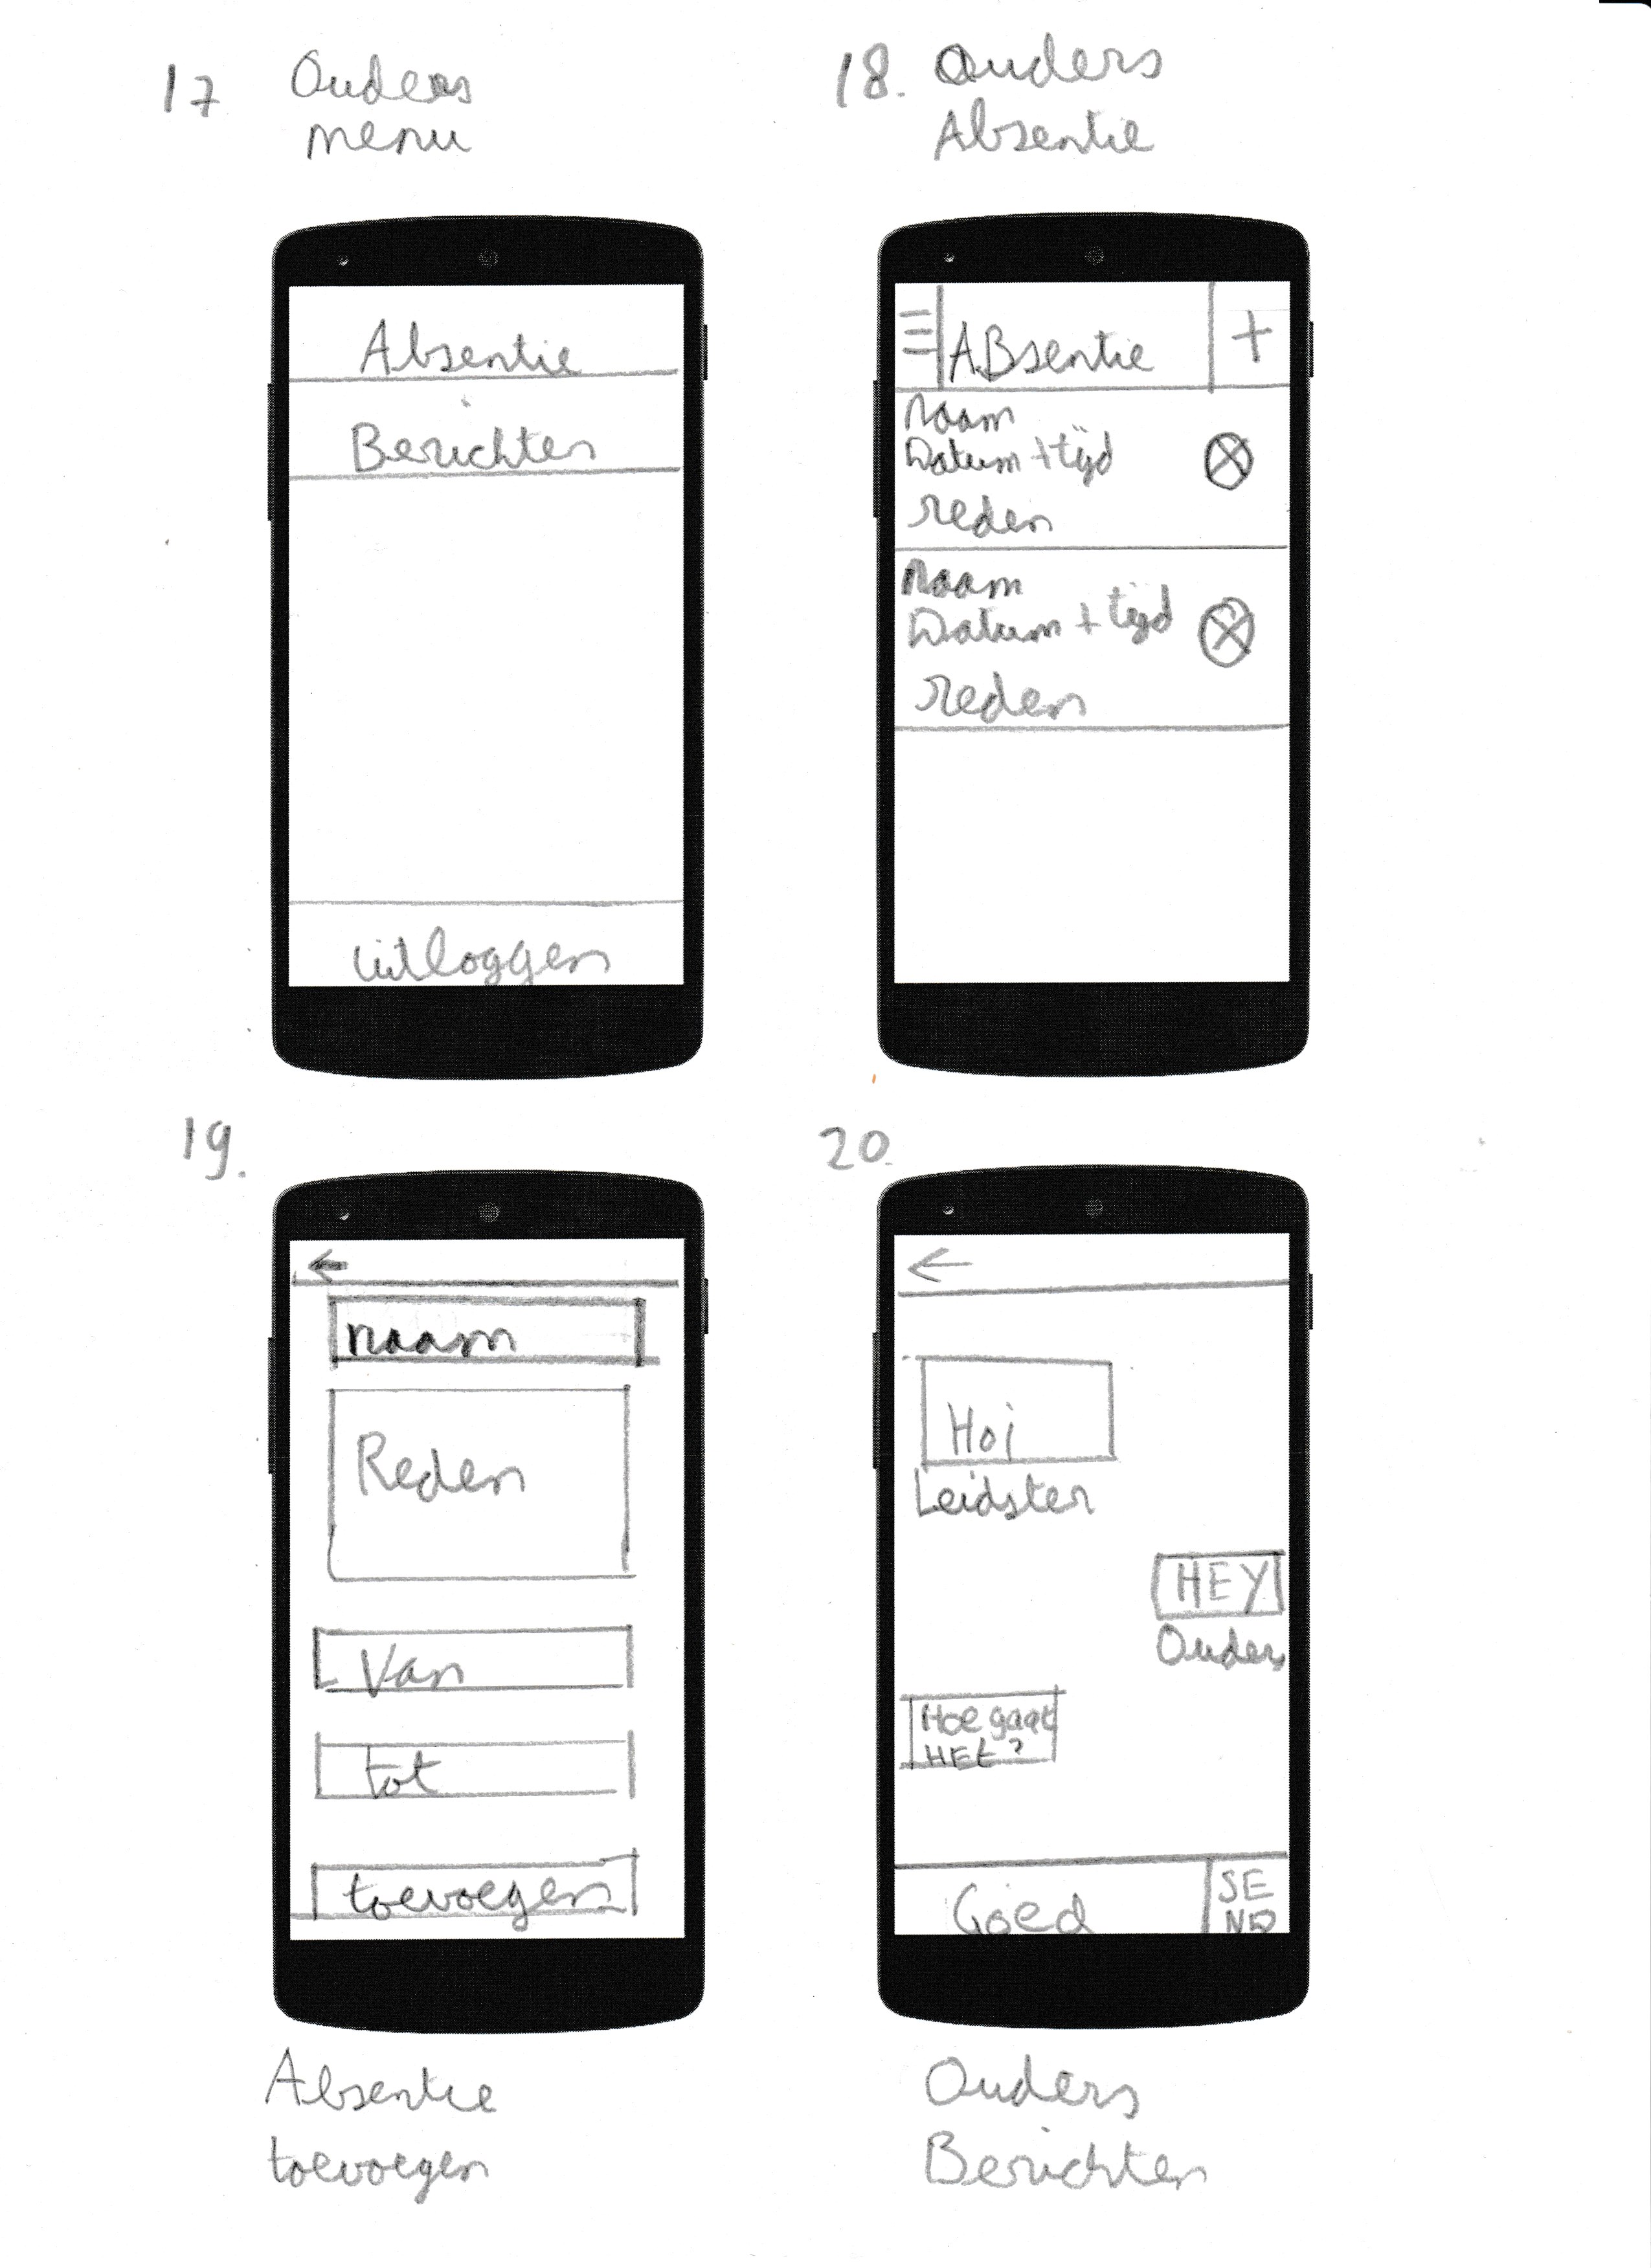 17 Ouders
menu
Absentie
Berichten
uitloggen
18. Ouders
Absentie
ABsentie +
Naam
Datum + tijd
reden
Naam
Datum + tijd
reden
19.
naam
Reden
Van
tot
toevoegen
Absentie
toevoegen
20.
Hoi
Leidster
HEY
Ouders
Hoe gaat
HEt?
Goed
SE
ND
Ouders
Berichten